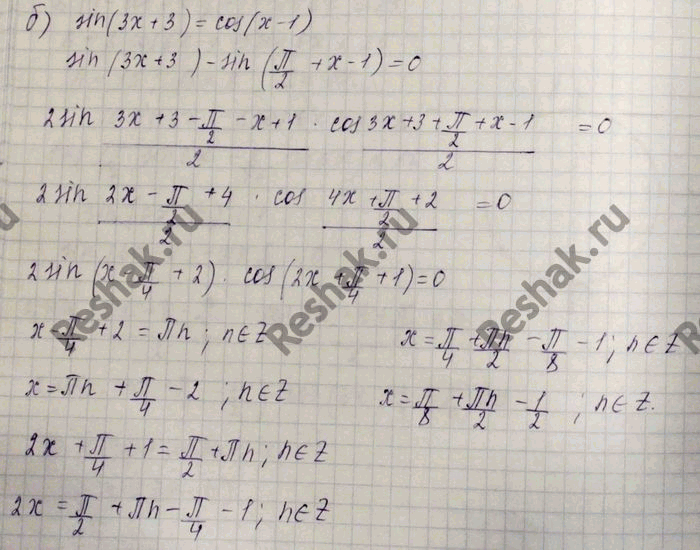 б) sin(3x+3) = cos(x-1)
sin(3x+3) - sin(π/2 + x - 1) = 0
2sin (3x+3-π/2-x+1)/2 · cos (3x+3+π/2+x-1)/2 = 0
2sin (2x-π/2+4)/2 · cos (4x+π/2+2)/2 = 0
2sin(x-π/4+2) · cos(2x+π/4+1)=0
x-π/4+2 = πn; n∈Z
x=πn+π/4-2; n∈Z
2x+π/4+1=π/2+πn; n∈Z
2x=π/2+πn-π/4-1; n∈Z
x=π/4+πn/2-π/8-1; n∈Z
x=π/8+πn/2-1/2; n∈Z.
Reshak.ru
Reshak.ru
Reshak.ru